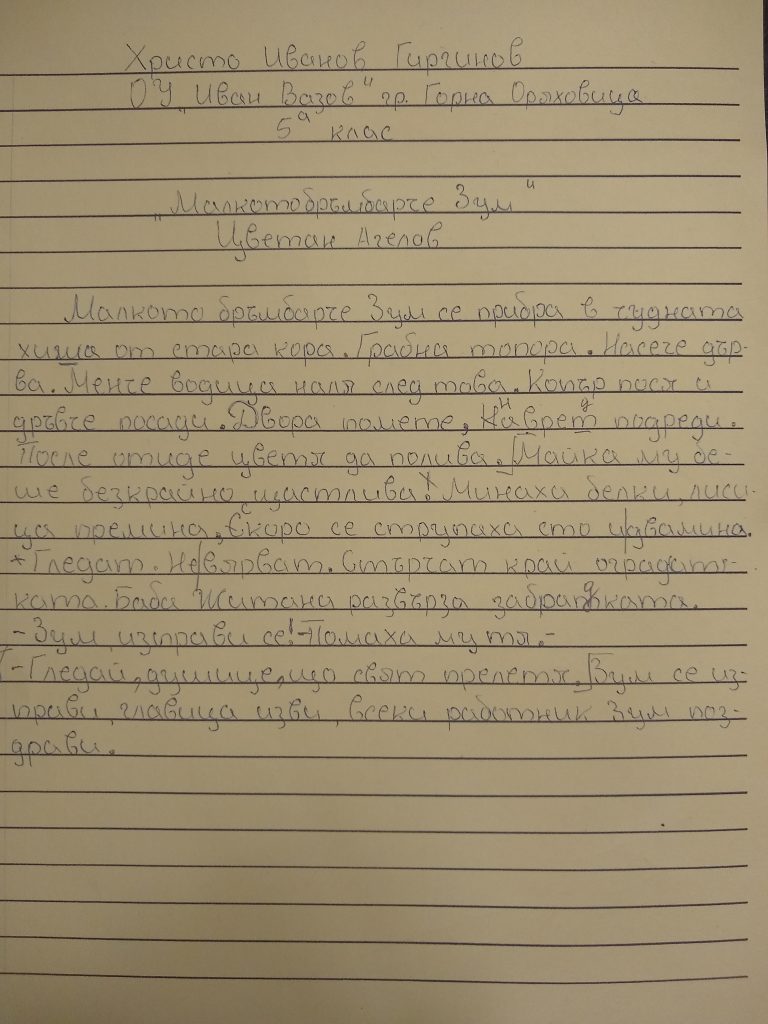 Христо Иванов Гиргинов
ОУ „Иван Вазов" гр. Горна Оряховица
5а клас
„Малкотобръмбарче Зум"
Цветан Агелов
Малкото бръмбарче Зум се прибра в чудната
хижа от стара кора. Грабна топора. Насече дър-
ва. Менче водица наля след това. Копър пося и
дръвче посади. Двора помете, Наврет подреди.
После отиде цветя да полива. Майка му бе-
ше безкрайно щастлива! Минаха белки, лиси-
ца премина. Скоро се струпаха сто и двамина.
Гледат. Не вярват. Стърчат край оградат-
ката. Баба Житана развърза забрадката.
- Зум, изправи се! - Помаха му тя. -
- Гледай, душице, що свят прелетя. Зум се из-
прави, главица изви, всеки работник Зум поз-
драви.